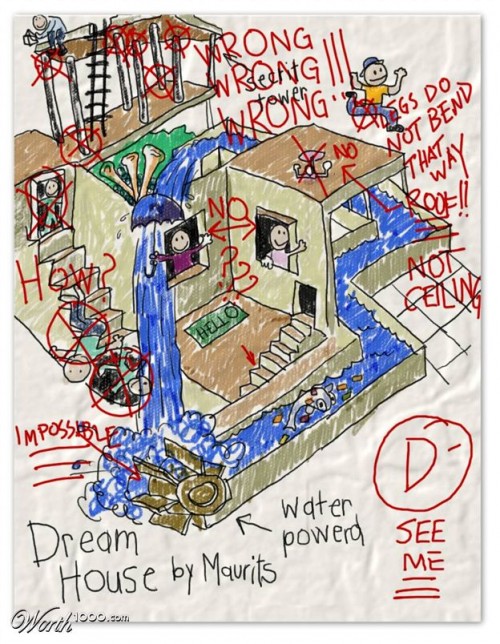 WRONG
WRONG!!!
WRONG!!
secrit
tower
LEGS DO
NOT BEND
THAT
WAY
NO
ROOF!!
NOT
CEILING
NO
HOW?
???
HELLO
IMPOSSIBLE
D-
SEE
ME
water
powerd
Dream
House by Maurits
Worth1000.com